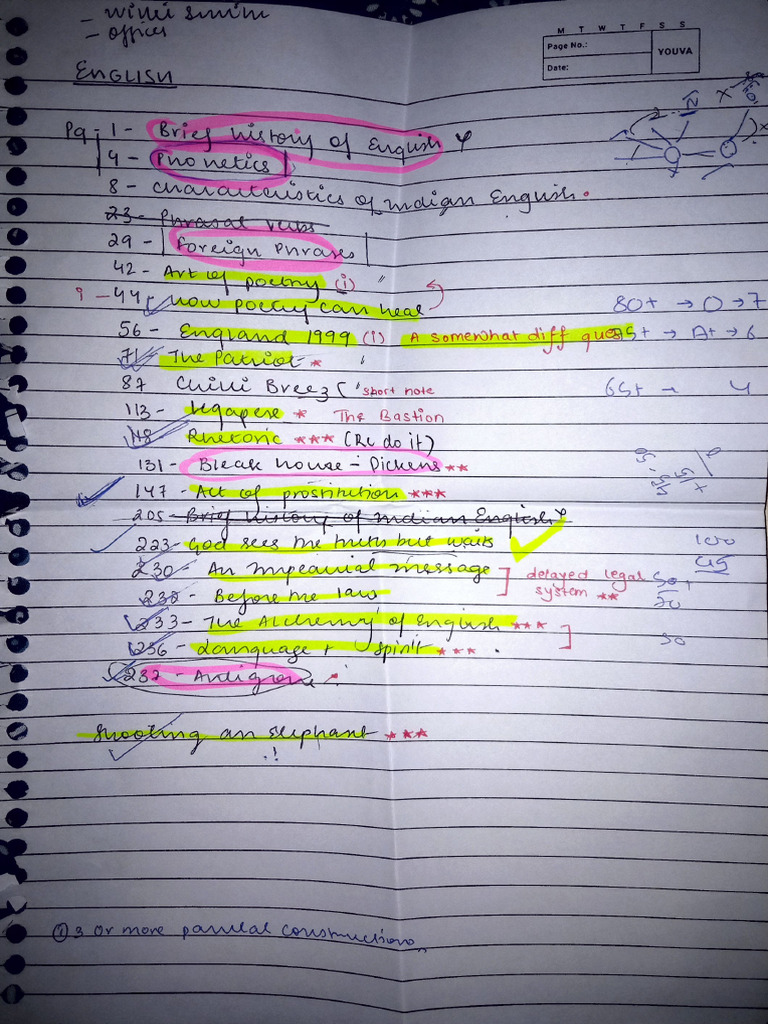 - Will Smith
- offices
M T W T F S S
Page No.:
Date:
YOUVA
ENGLISH
Pg - 1 - Brief history of English
4 - Phonetics
8 - characteristics of Indian English.
23 - Phrasal verbs
29 - Foreign Phrases
42 - Art of poetry (i)
44 - how poetry can heal
56 - England 1999 (i) A somewhat diff ques
80+ → O → 7
75+ → A+ → 6
71 - The Patriot *
87 Chilli Breeze short note
65+ → 4
113 - Kgapese * The Bastion
118 - Rhetoric *** (Re do it)
131 - Bleak house - Dickens **
147 - Act of prostitution ***
205 - Brief history of Indian English
223 - God sees the truth but waits
100
45
230 - An Imperial message
232 - Before the law
delayed legal system **
50+
50
233 - The Alchemy of English ***
256 - Language + spirit ***.
50
287 - Antigone *
Shooting an elephant ***
① 3 or more parallel constructions